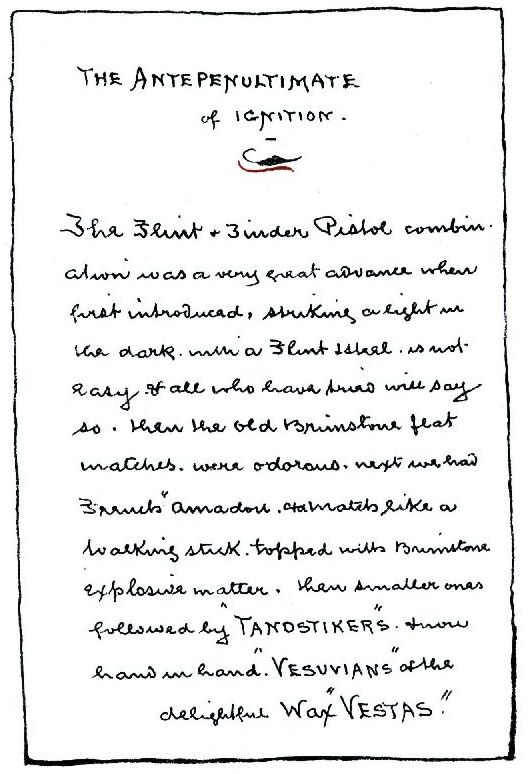 THE ANTEPENULTIMATE
of IGNITION.
The Flint + Tinder Pistol combin-
ation was a very great advance when
first introduced, striking a light in
the dark. with a Flint & Steel. is not
easy & all who have tried will say
so. then the old Brimstone flat
matches. were odorous. next we had
French "Amadou. & a match like a
walking stick. topped with Brimstone
explosive matter. then smaller ones
followed by "TANDSTIKERS". & now
hand in hand. "VESUVIANS" & the
delightful Wax "VESTAS."